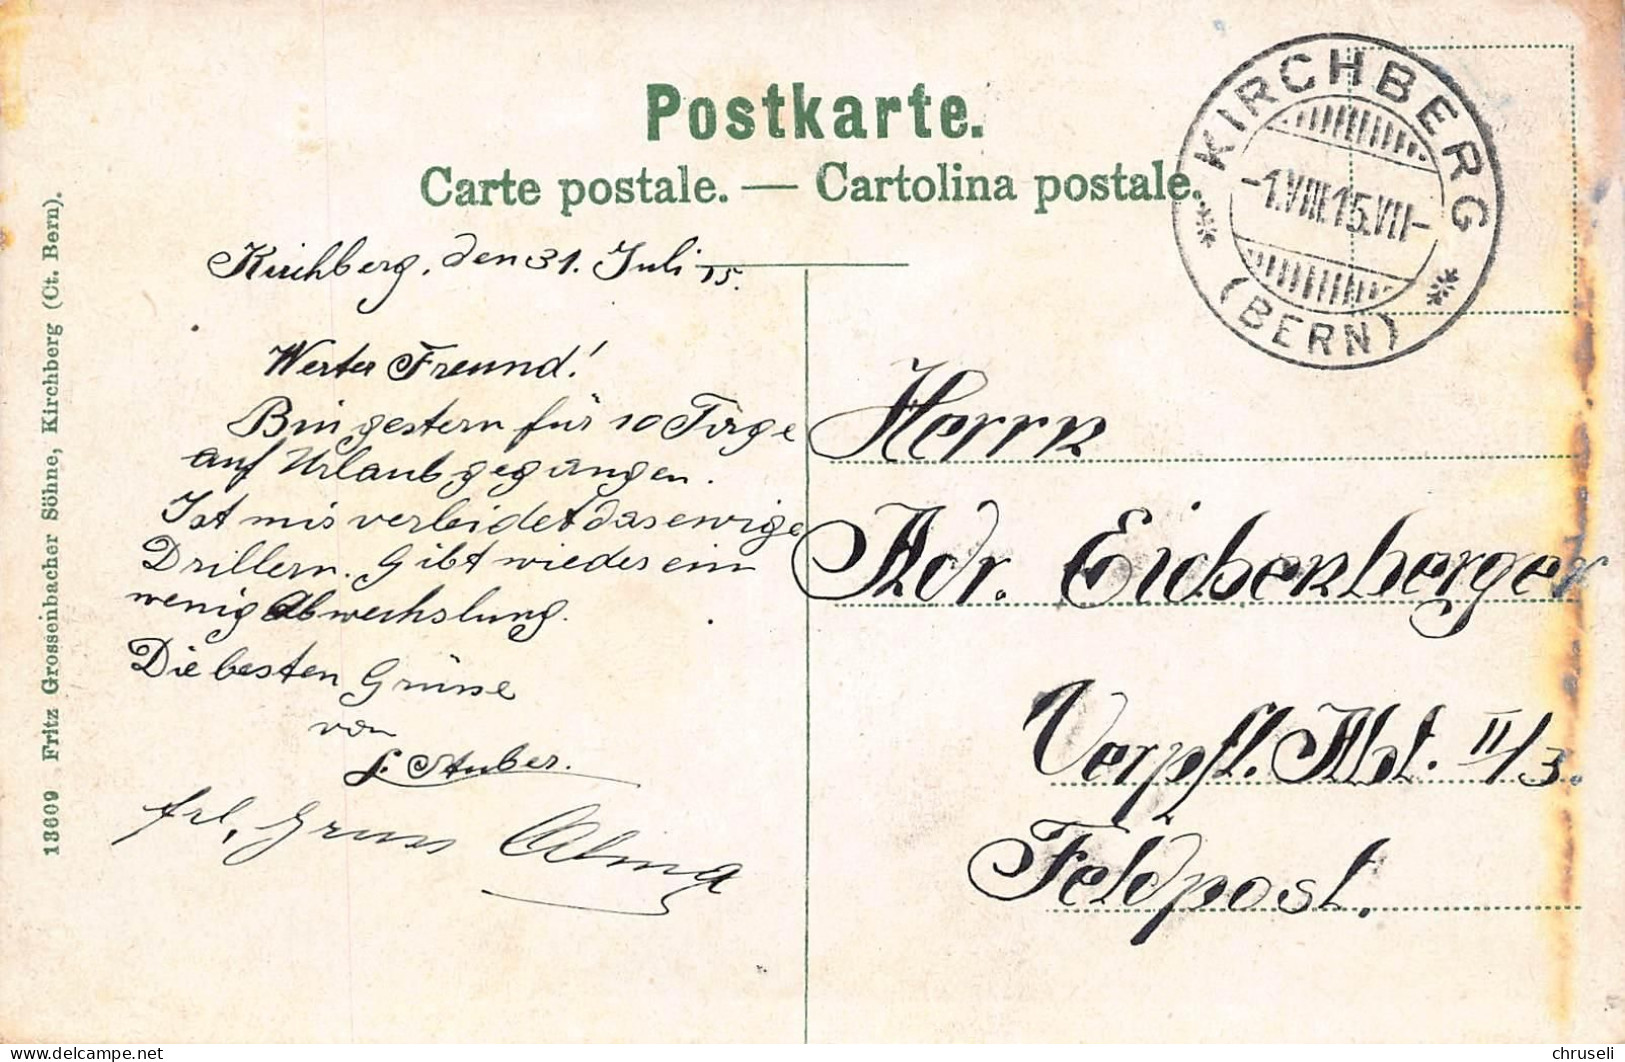 Postkarte.
Carte postale. — Cartolina postale.
KIRCHBERG
-1.VIII.15.VII-
(BERN)
Kirchberg, den 31. Juli 15.
Werter Freund!
Bin gestern für 10 Tage
auf Urlaub gegangen.
Ist mir verleidet das ewige
Drillern. Gibt wieder ein
wenig Abwechslung.
Die besten Grüsse
von
F. Stuber.
frl. Gruss Alma
Herrn
Adr. Eichenberger
Verpfl. Abt. II/3.
Feldpost.
13609 Fritz Grossenbacher Söhne, Kirchberg (Ct. Bern).
delcampe.net
chruseli